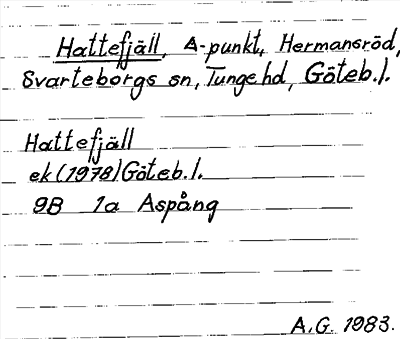 Hattefjäll, Δ-punkt, Hermansröd,
Svarteborgs sn, Tunge hd, Göteb.l.
Hattefjäll
ek (1978) Göteb.l.
9B 1a Aspång
A.G. 1983.